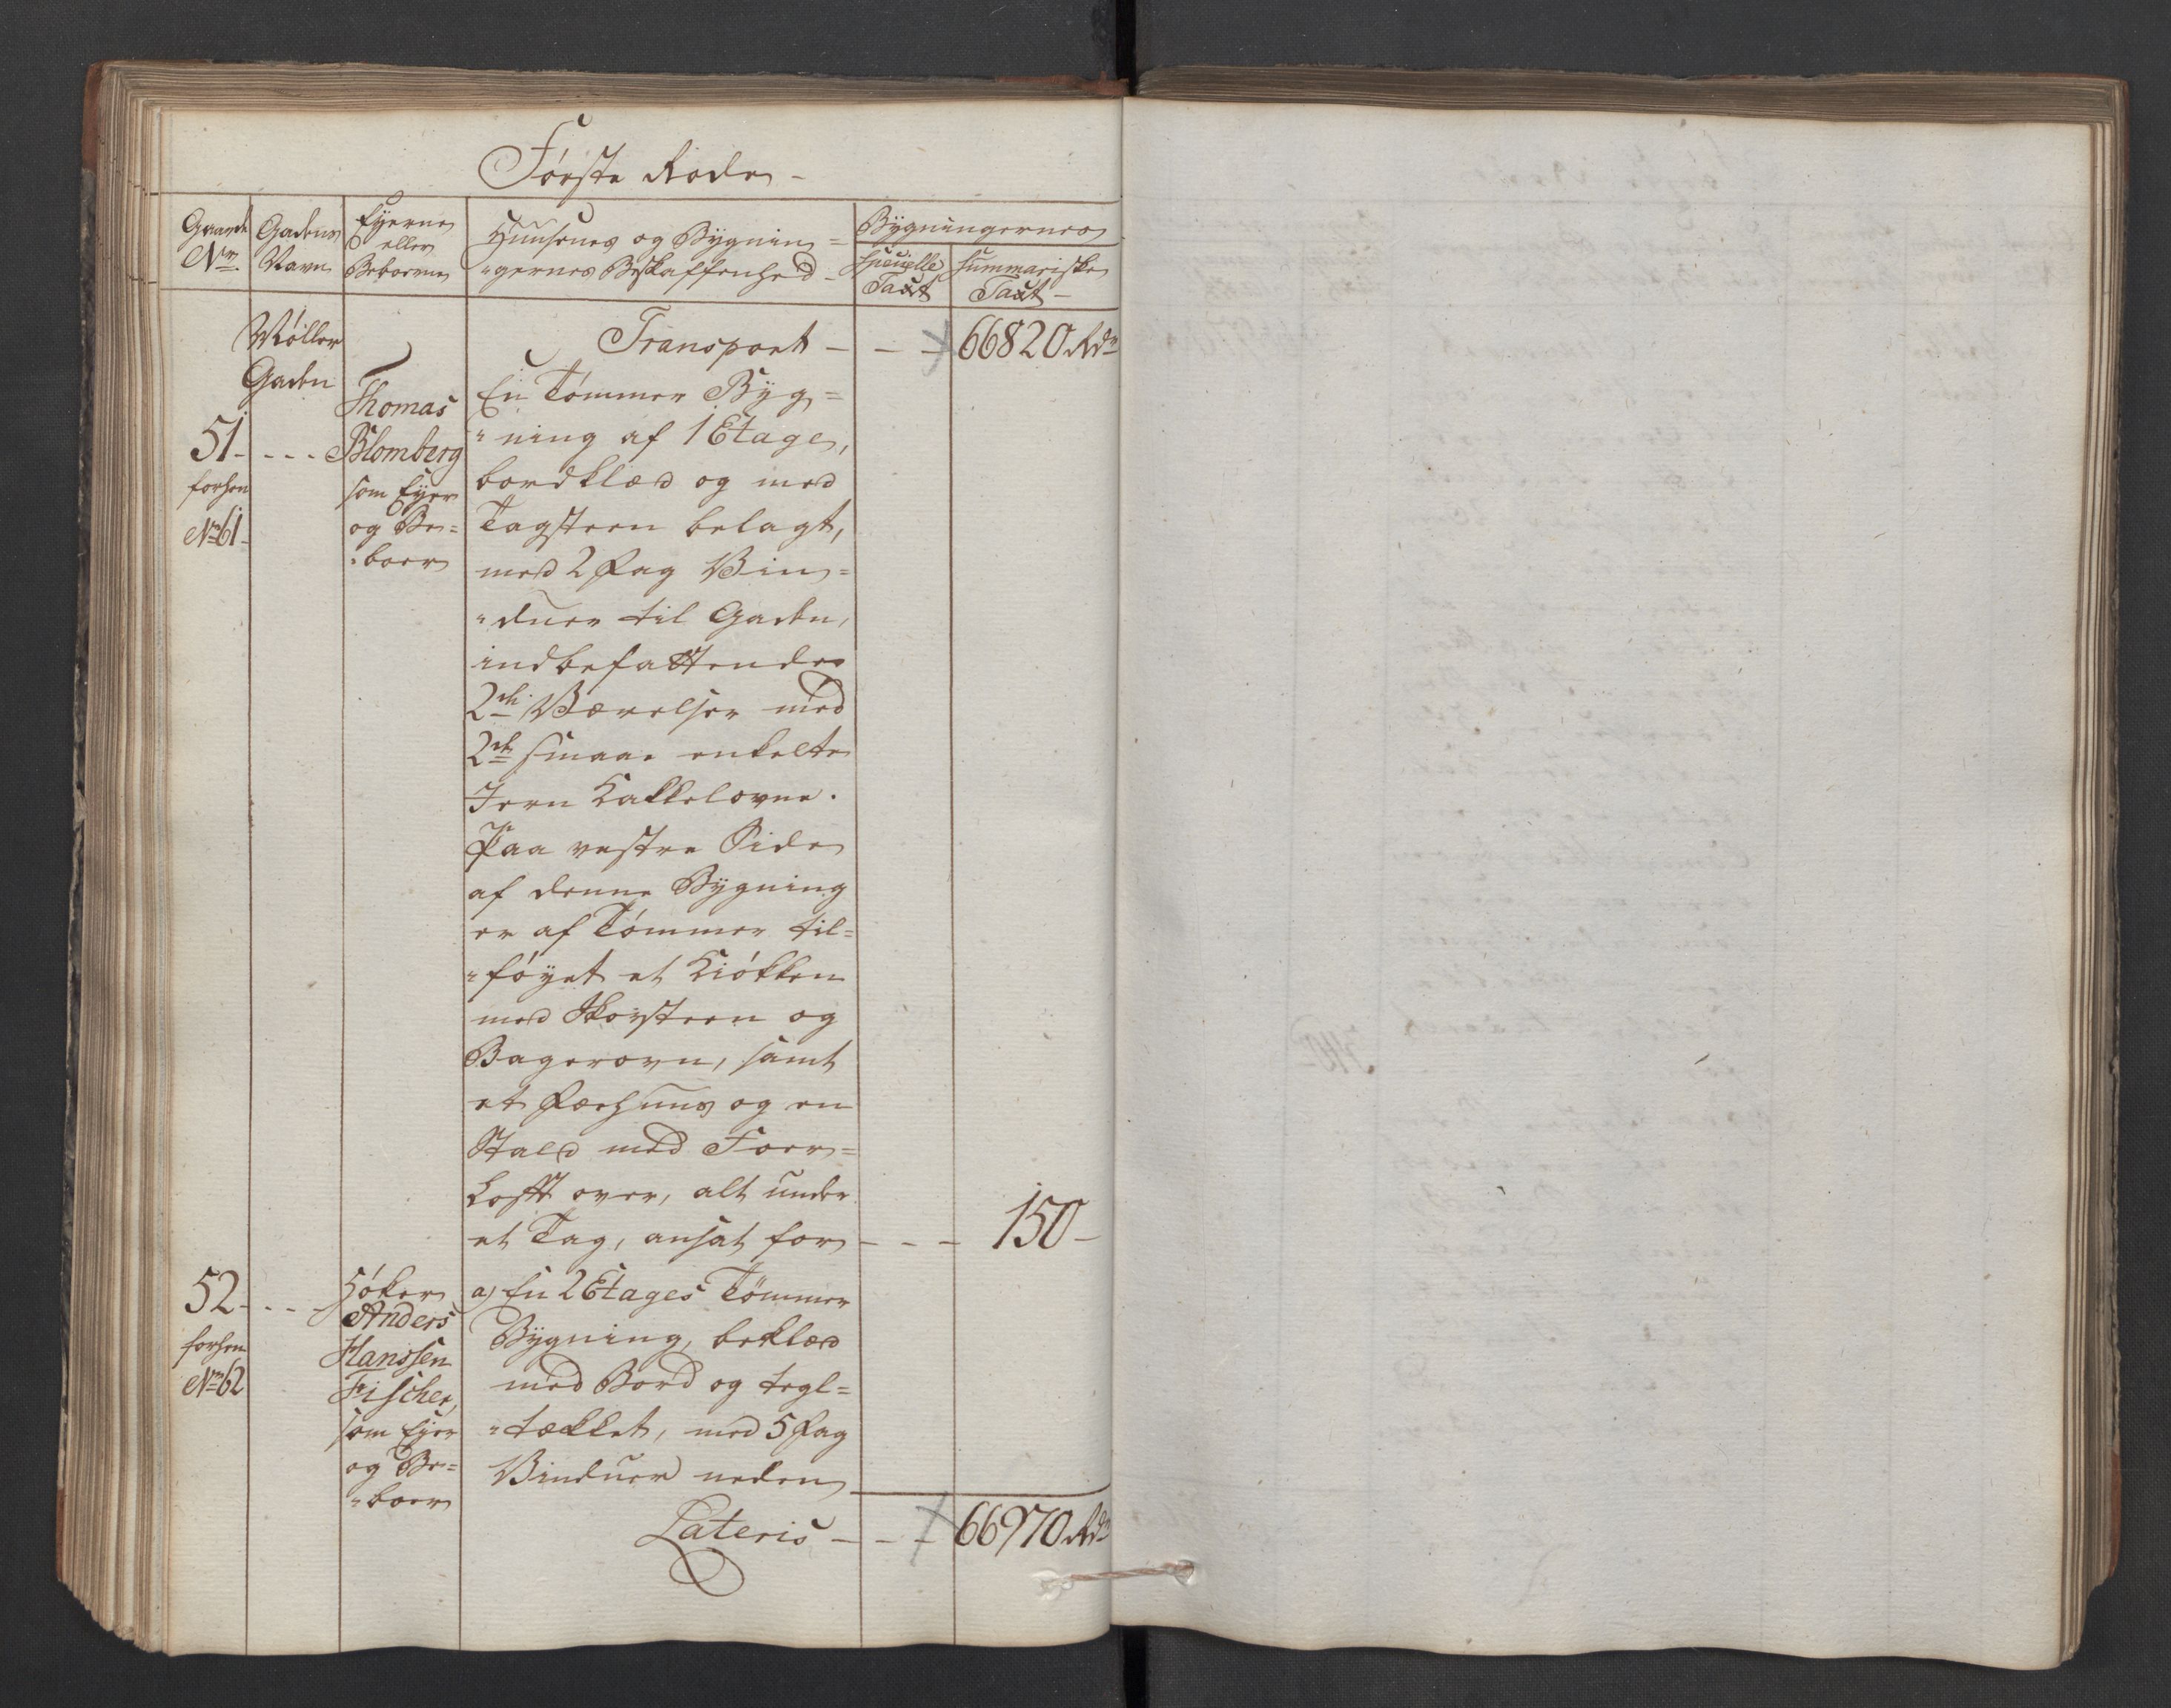 Første Rode
Gaarde Nr.
Gadens Navn
Eyerne eller Beboerne
Huusenes og Bygnin=
"gernes Beskaffenhed
Bygningernes
specielle Taxt
summariske Taxt
Møller
Gaden
Transport - - - 66820 Rdr
51 - - - -
forhen
No 61
Thomas
Blomberg
som Eyer
og Be=
"boer
En Tømmer Byg=
"ning af 1 Etage,
bordklæd og med
Tagsteen belagt,
med 2 Fag Vin=
"duer til Gaden,
indbefattende
2de Værelser med
2de smaae enkelte
Jern Kakkelovne.
Paa vestre Side
af denne Bygning
er af Tømmer til=
"føyet et Kiøkken
med Skorsteen og
Bagerovn, samt
et Fæehuus og en
Stald med Foer=
Loft over, alt under
et Tag, ansat for - - - 150 -
52 - - - -
forhen
No 62
Høker
Anders
Hanssen
Fischer,
som Eyer
og Be=
"boer
a) En 2 Etages Tømmer
Bygning, beklæd
med Bord og tegl=
"tækket, med 5 Fag
Vinduer neden
Lateris - - - 66970 Rdr